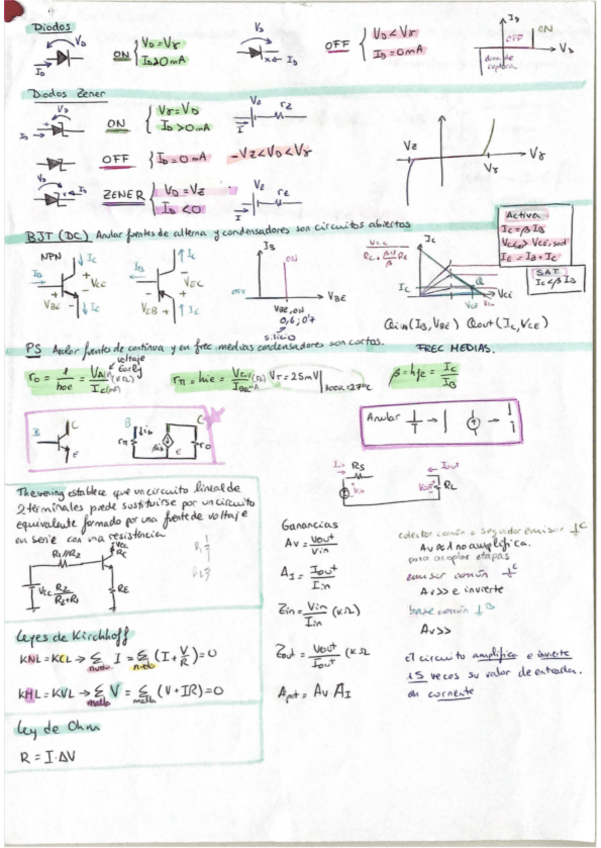 Diodos
V_D
I_D
ON { V_D = Vγ
I_D > 0 mA
V_D
I_D
OFF { V_D < Vγ
I_D = 0 mA
I_D
ON
OFF
V_D
zona de ruptura
Diodos Zener
V_D
I_D
ON { Vγ = V_D
I_D > 0 mA
V_Z
r_Z
I
OFF { I_D = 0 mA -V_Z < V_D < Vγ
ZENER { V_D = V_Z
I_D < 0
V_Z
r_Z
I
V_Z
Vγ
Vγ
BJT (DC) Anular fuentes de alterna y condensadores son circuitos abiertos
NPN
I_C
I_B
+
V_CE
-
V_BE
I_E
PNP
I_C
I_B
V_EC
V_EB
I_E
I_B
ON
OFF
V_BE
V_BE,ON
0,6; 0,7
silicio
I_C
I_C
Q
V_CE
Q_in (I_B, V_BE) Q_out (I_C, V_CE)
Activa
I_C = β I_B
V_CE > V_CE,sat
I_E = I_B + I_C
SAT
I_C < β I_B
PS Anular fuentes de continua y en frec. medias condensadores son cortos.
FREC MEDIAS.
voltaje
Early
r_o = 1/hoe = V_A/I_C(mA) (KΩ)
rπ = hie =
V_T = 25mV | 300K = 27ºC
β = hfe = I_C/I_B
B
C
E
B
C
rπ
↓ib
βib
E
r_o
Anular
Thevening establece que un circuito lineal de
2 terminales puede sustituirse por un circuito
equivalente formado por una fuente de voltaje
en serie con una resistencia.
R1//R2
Vcc
RC
Vcc R2/(R2+R1)
RE
Iin
RS
Vin
Iout
Vout
RL
Ganancias
Av = Vout/Vin
A_I = Iout/Iin
Zin = Vin/Iin (KΩ)
Zout = Vout/Iout (KΩ
Apot = Av A_I
colector común o seguidor emisor C
Av ≈ 1 no amplifica.
para acoplar etapas
emisor común
Av >> e invierte
base común B
Av >>
el circuito amplifica e invierte
15 veces su valor de entrada.
en corriente
Leyes de Kirchhoff
KNL = KCL → Σ nudo I = Σ nudo (I + V/R) = 0
KML = KVL → Σ malla V = Σ malla (V + IR) = 0
Ley de Ohm
R = I·ΔV